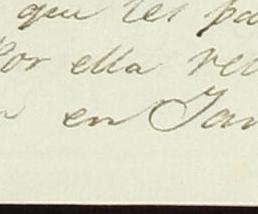 que les pa
Por ella rec
en San